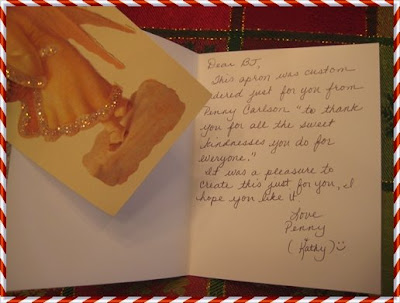 Dear BJ,
This apron was custom
ordered just for you from
Penny Carlson "to thank
you for all the sweet
kindnesses you do for
everyone."
It was a pleasure to
create this just for you, I
hope you like it
Love
Penny
(Kathy) ☺